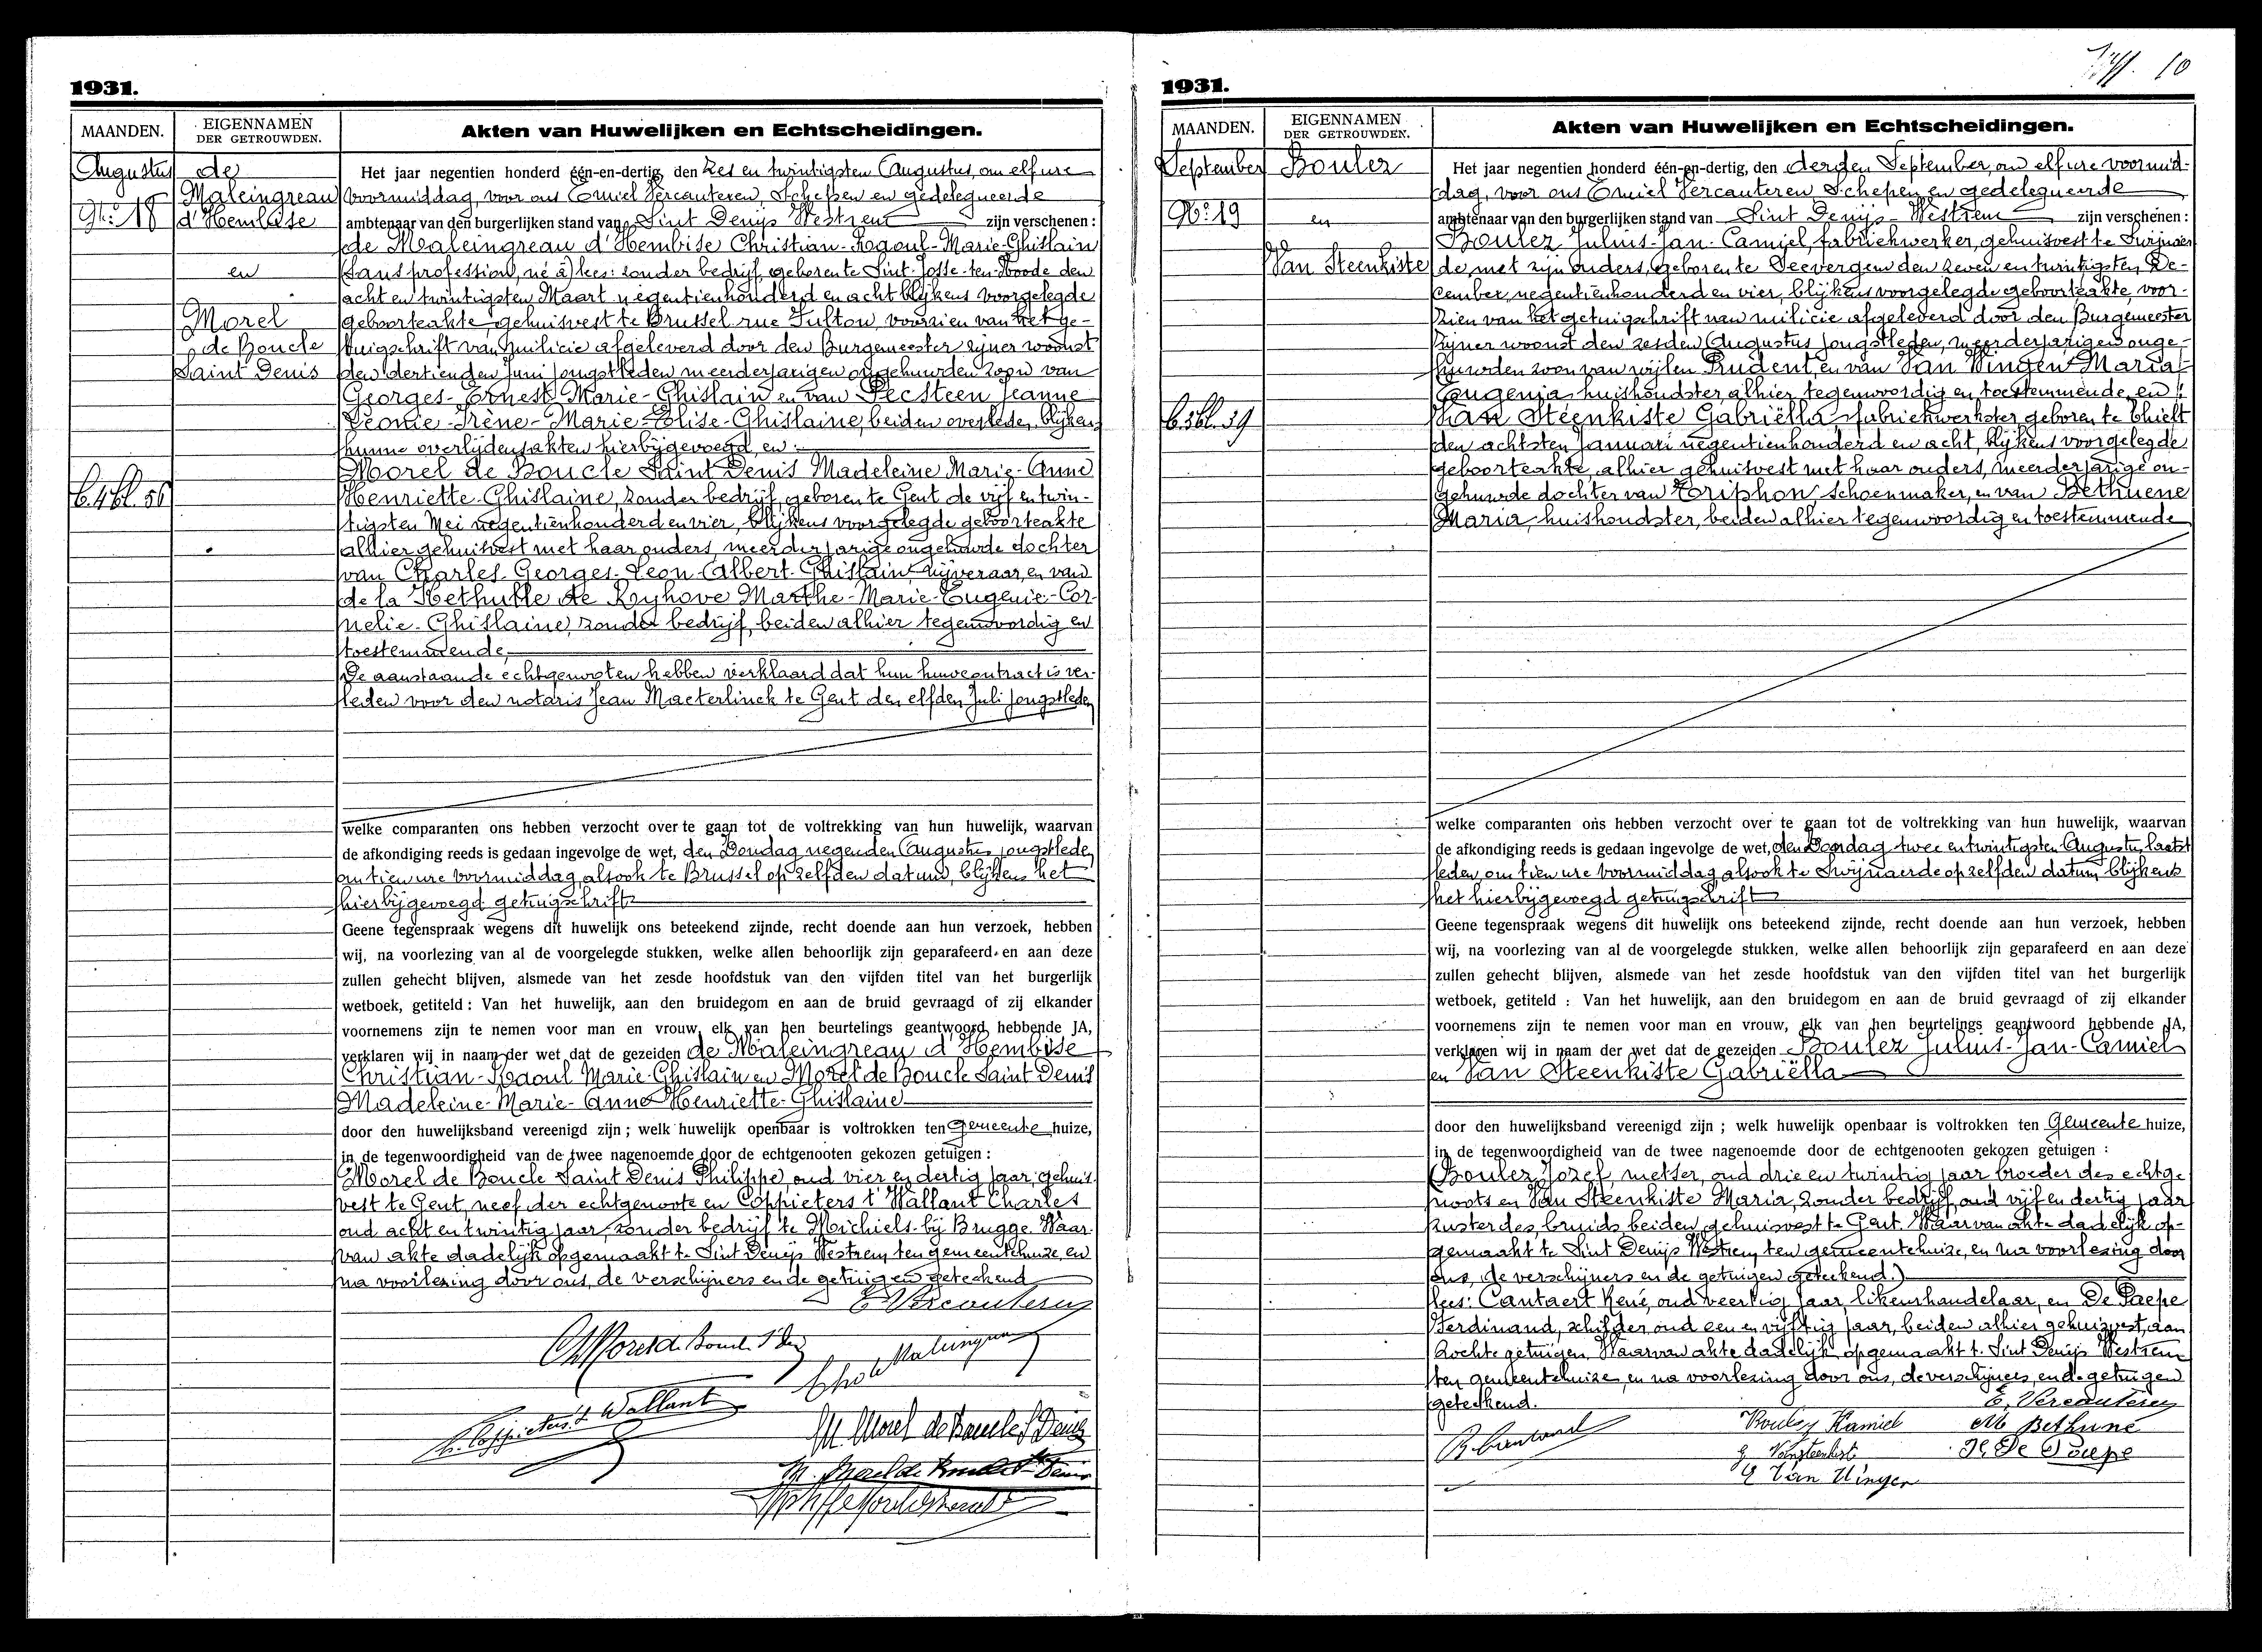 1931.
MAANDEN.
EIGENNAMEN
DER GETROUWDEN.
Akten van Huwelijken en Echtscheidingen.
Augustus
No: 18
B. 4 bl. 56
de
Maleingreau
d'Hembise
en
Morel
de Boucle
Saint Denis
Het jaar negentien honderd één-en-dertig, den Zes en twintigsten Augustus, om elf ure
voormiddag, voor ons Emiel Vercauteren, Schepen en gedelegueerde
ambtenaar van den burgerlijken stand van Sint Denijs Westrem zijn verschenen :
de Maleingreau d'Hembise Christian-Raoul-Marie-Ghislain
(sans profession, né à) lees: zonder bedrijf, geboren te Sint-Josse-ten-Noode den
acht en twintigsten Maart negentienhonderd en acht blijkens voorgelegde
geboorteakte, gehuisvest te Brussel rue Fulton, voorzien van het ge-
tuigschrift van milicie afgeleverd door den Burgemeester zijner woonst
den dertienden Juni jongstleden meerderjarigen ongehuwden zoon van
Georges-Ernest-Marie-Ghislain en van Pecsteen Jeanne
Leonie-Irène-Marie-Elise-Ghislaine, beiden overleden, blijkens
hunne overlijdensakten hierbijgevoegd, en :
Morel de Boucle Saint Denis Madeleine Marie-Anne
Henriette-Ghislaine, zonder bedrijf, geboren te Gent de vijf en twin-
tigsten Mei negentienhonderd en vier, blijkens voorgelegde geboorteakte
alhier gehuisvest met haar ouders, meerderjarige ongehuwde dochter
van Charles-Georges-Leon-Albert-Ghislain, nijveraar, en van
de la Kethulle de Ryhove Marthe-Marie-Eugenie-Cor-
nelie-Ghislaine, zonder bedrijf, beiden alhier tegenwoordig en
toestemmende,
De aanstaande echtgenooten hebben verklaard dat hun huwcontract is ver-
leden voor den notaris Jean Maeterlinck te Gent den elfden Juli jongstleden
welke comparanten ons hebben verzocht over te gaan tot de voltrekking van hun huwelijk, waarvan
de afkondiging reeds is gedaan ingevolge de wet, den Zondag negenden Augustus jongstleden
om tien ure voormiddag alsook te Brussel op zelfden datum, blijkens het
hierbijgevoegd getuigschrift
Geene tegenspraak wegens dit huwelijk ons beteekend zijnde, recht doende aan hun verzoek, hebben
wij, na voorlezing van al de voorgelegde stukken, welke allen behoorlijk zijn geparafeerd en aan deze
zullen gehecht blijven, alsmede van het zesde hoofdstuk van den vijfden titel van het burgerlijk
wetboek, getiteld : Van het huwelijk, aan den bruidegom en aan de bruid gevraagd of zij elkander
voornemens zijn te nemen voor man en vrouw, elk van hen beurtelings geantwoord hebbende JA,
verklaren wij in naam der wet dat de gezeiden de Maleingreau d'Hembise
Christian-Raoul Marie Ghislain en Morel de Boucle Saint Denis
Madeleine-Marie-Anne Henriette-Ghislaine
door den huwelijksband vereenigd zijn ; welk huwelijk openbaar is voltrokken ten Gemeente huize,
in de tegenwoordigheid van de twee nagenoemde door de echtgenooten gekozen getuigen :
Morel de Boucle Saint Denis Philippe, oud vier en dertig jaar, gehuis-
vest te Gent, neef der echtgenoote en Coppieters t'Wallant Charles
oud acht en twintig jaar, zonder bedrijf te Michiels bij Brugge. Waar-
van akte dadelijk opgemaakt te Sint Denijs Westrem, ten gemeentehuize, en
na voorlezing door ons, de verschijners en de getuigen geteekend
E. Vercauteren
Ch Morel de Boucle St Denis
Ch. Coppieters t' Wallant
M. Morel de Boucle St Denis
1931.
10
MAANDEN.
EIGENNAMEN
DER GETROUWDEN.
Akten van Huwelijken en Echtscheidingen.
September
No: 19
B. 3 bl. 39
Boulez
en
Van Steenkiste
Het jaar negentien honderd één-en-dertig, den derden September, om elf ure voormid-
dag, voor ons Emiel Vercauteren Schepen en gedelegueerde
ambtenaar van den burgerlijken stand van Sint Denijs-Westrem zijn verschenen :
Boulez Julius-Jan-Camiel, fabriekwerker, gehuisvest te Swijnaer-
de, met zijn ouders, geboren te Seevergem den zeven en twintigsten De-
cember, negentienhonderd en vier, blijkens voorgelegde geboorteakte, voor-
zien van het getuigschrift van milicie afgeleverd door den Burgemeester
zijner woonst den zesden Augustus jongstleden, meerderjarigen onge-
huwden zoon van wijlen Prudent, en van Van Wingen Maria-
Eugenia, huishoudster alhier tegenwoordig en toestemmende, en :
Van Steenkiste Gabriëlla, fabriekwerkster geboren te Thielt
den achtsten Januari negentienhonderd en acht, blijkens voorgelegde
geboorteakte, alhier gehuisvest met haar ouders, meerderjarige on-
gehuwde dochter van Triphon, schoenmaker, en van Bethuene
Maria, huishoudster, beiden alhier tegenwoordig en toestemmende
welke comparanten ons hebben verzocht over te gaan tot de voltrekking van hun huwelijk, waarvan
de afkondiging reeds is gedaan ingevolge de wet, den Zondag twee en twintigsten Augustus, laatst-
leden, om tien ure voormiddag alsook te Swijnaerde op zelfden datum, blijkens
het hierbijgevoegd getuigschrift
Geene tegenspraak wegens dit huwelijk ons beteekend zijnde, recht doende aan hun verzoek, hebben
wij, na voorlezing van al de voorgelegde stukken, welke allen behoorlijk zijn geparafeerd en aan deze
zullen gehecht blijven, alsmede van het zesde hoofdstuk van den vijfden titel van het burgerlijk
wetboek, getiteld : Van het huwelijk, aan den bruidegom en aan de bruid gevraagd of zij elkander
voornemens zijn te nemen voor man en vrouw, elk van hen beurtelings geantwoord hebbende JA,
verklaren wij in naam der wet dat de gezeiden Boulez Julius-Jan-Camiel
en Van Steenkiste Gabriëlla
door den huwelijksband vereenigd zijn ; welk huwelijk openbaar is voltrokken ten Gemeente huize,
in de tegenwoordigheid van de twee nagenoemde door de echtgenooten gekozen getuigen :
(Boulez Jozef, metser, oud drie en twintig jaar broeder des echtge-
noots en Van Steenkiste Maria, zonder bedrijf, oud vijf en dertig jaar
zuster des bruids beiden gehuisvest te Gent. Waarvan akte dadelijk op-
gemaakt te Sint Denijs Westrem, ten gemeentehuize, en na voorlezing door
ons, de verschijners en de getuigen geteekend.)
lees: Cantaert René, oud veertig jaar, likeurhandelaar, en De Paepe
Ferdinand, schilder, oud een en vijftig jaar, beiden alhier gehuisvest, aan-
zochte getuigen. Waarvan akte dadelijk opgemaakt te Sint Denijs Westrem
ten gemeentehuize, en na voorlezing door ons, de verschijners, en de getuigen
geteekend.
E. Vercauteren
Boulez Kamiel
M Bethune
G Vansteenkiste
De Paepe
E Van Wingen